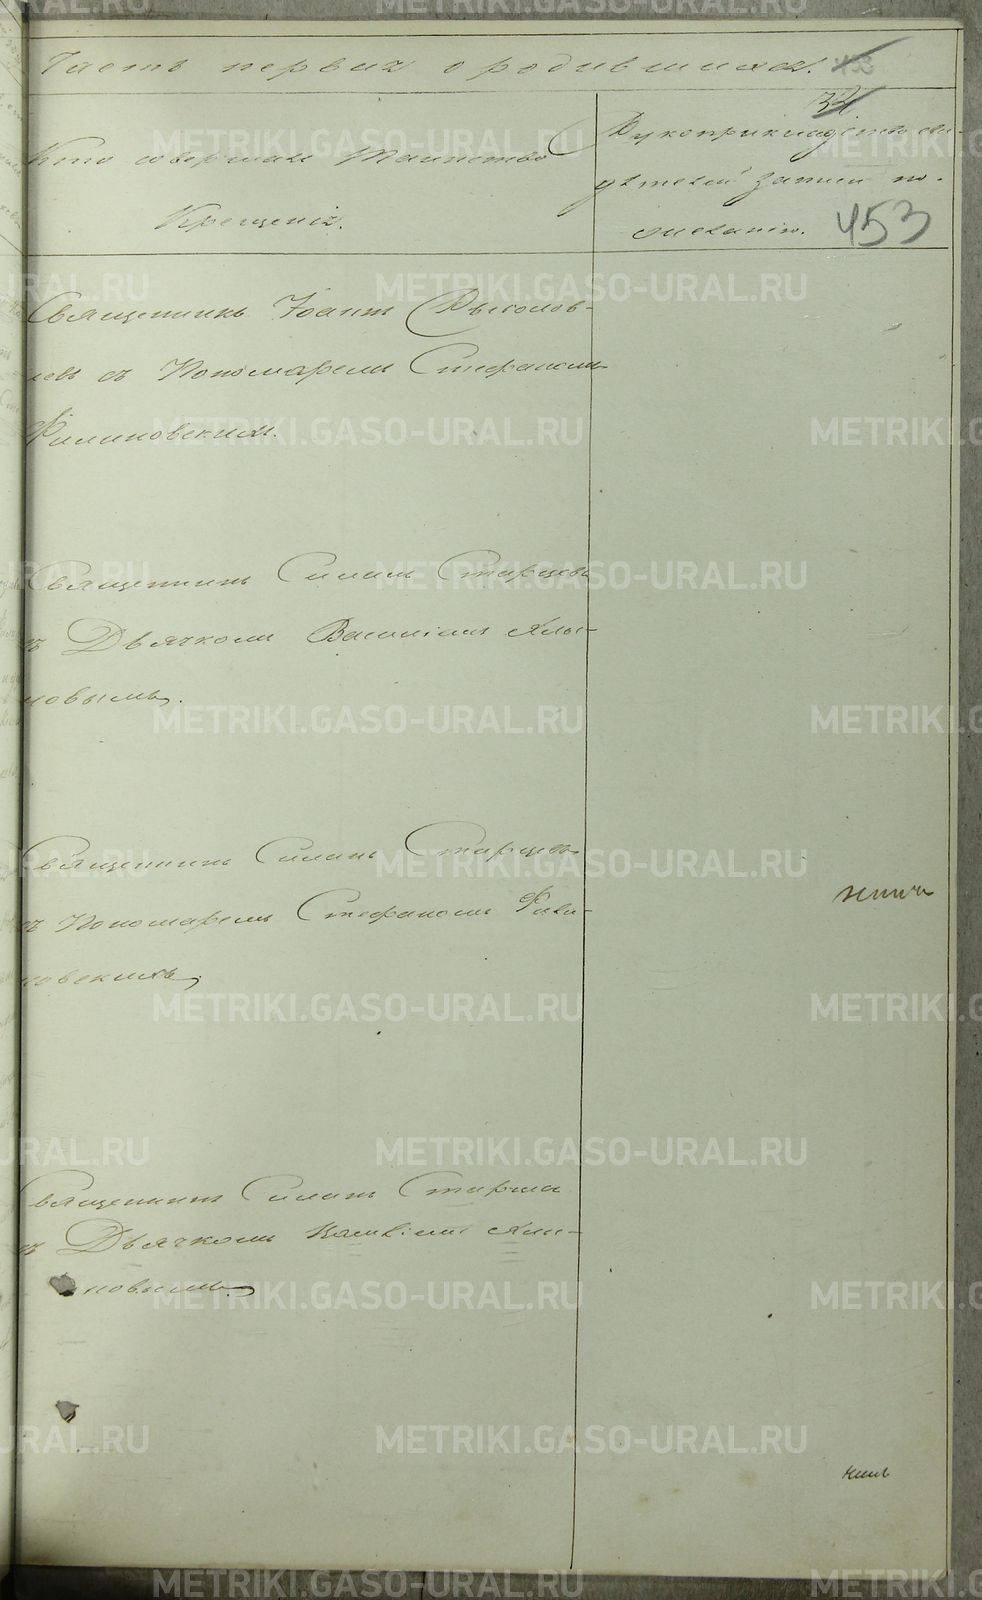 Часть первая о родившихся.
32.
Кто совершал таинство
Крещенія.
Рукоприкладство сви-
дѣтелей записи по
желанію.
453
Священникъ Іоаннъ
съ Пономаремъ Стефаномъ
Филиновскимъ.
Священникъ Симонъ Старцевъ
съ Дьячкомъ Василіемъ Ялы-
новымъ.
Священникъ Симонъ Старцевъ
съ Пономаремъ Стефаномъ Фили-
новскимъ.
Священникъ Симонъ Старцевъ
съ Дьячкомъ Василіемъ Ялы-
новымъ.
METRIKI.GASO-URAL.RU